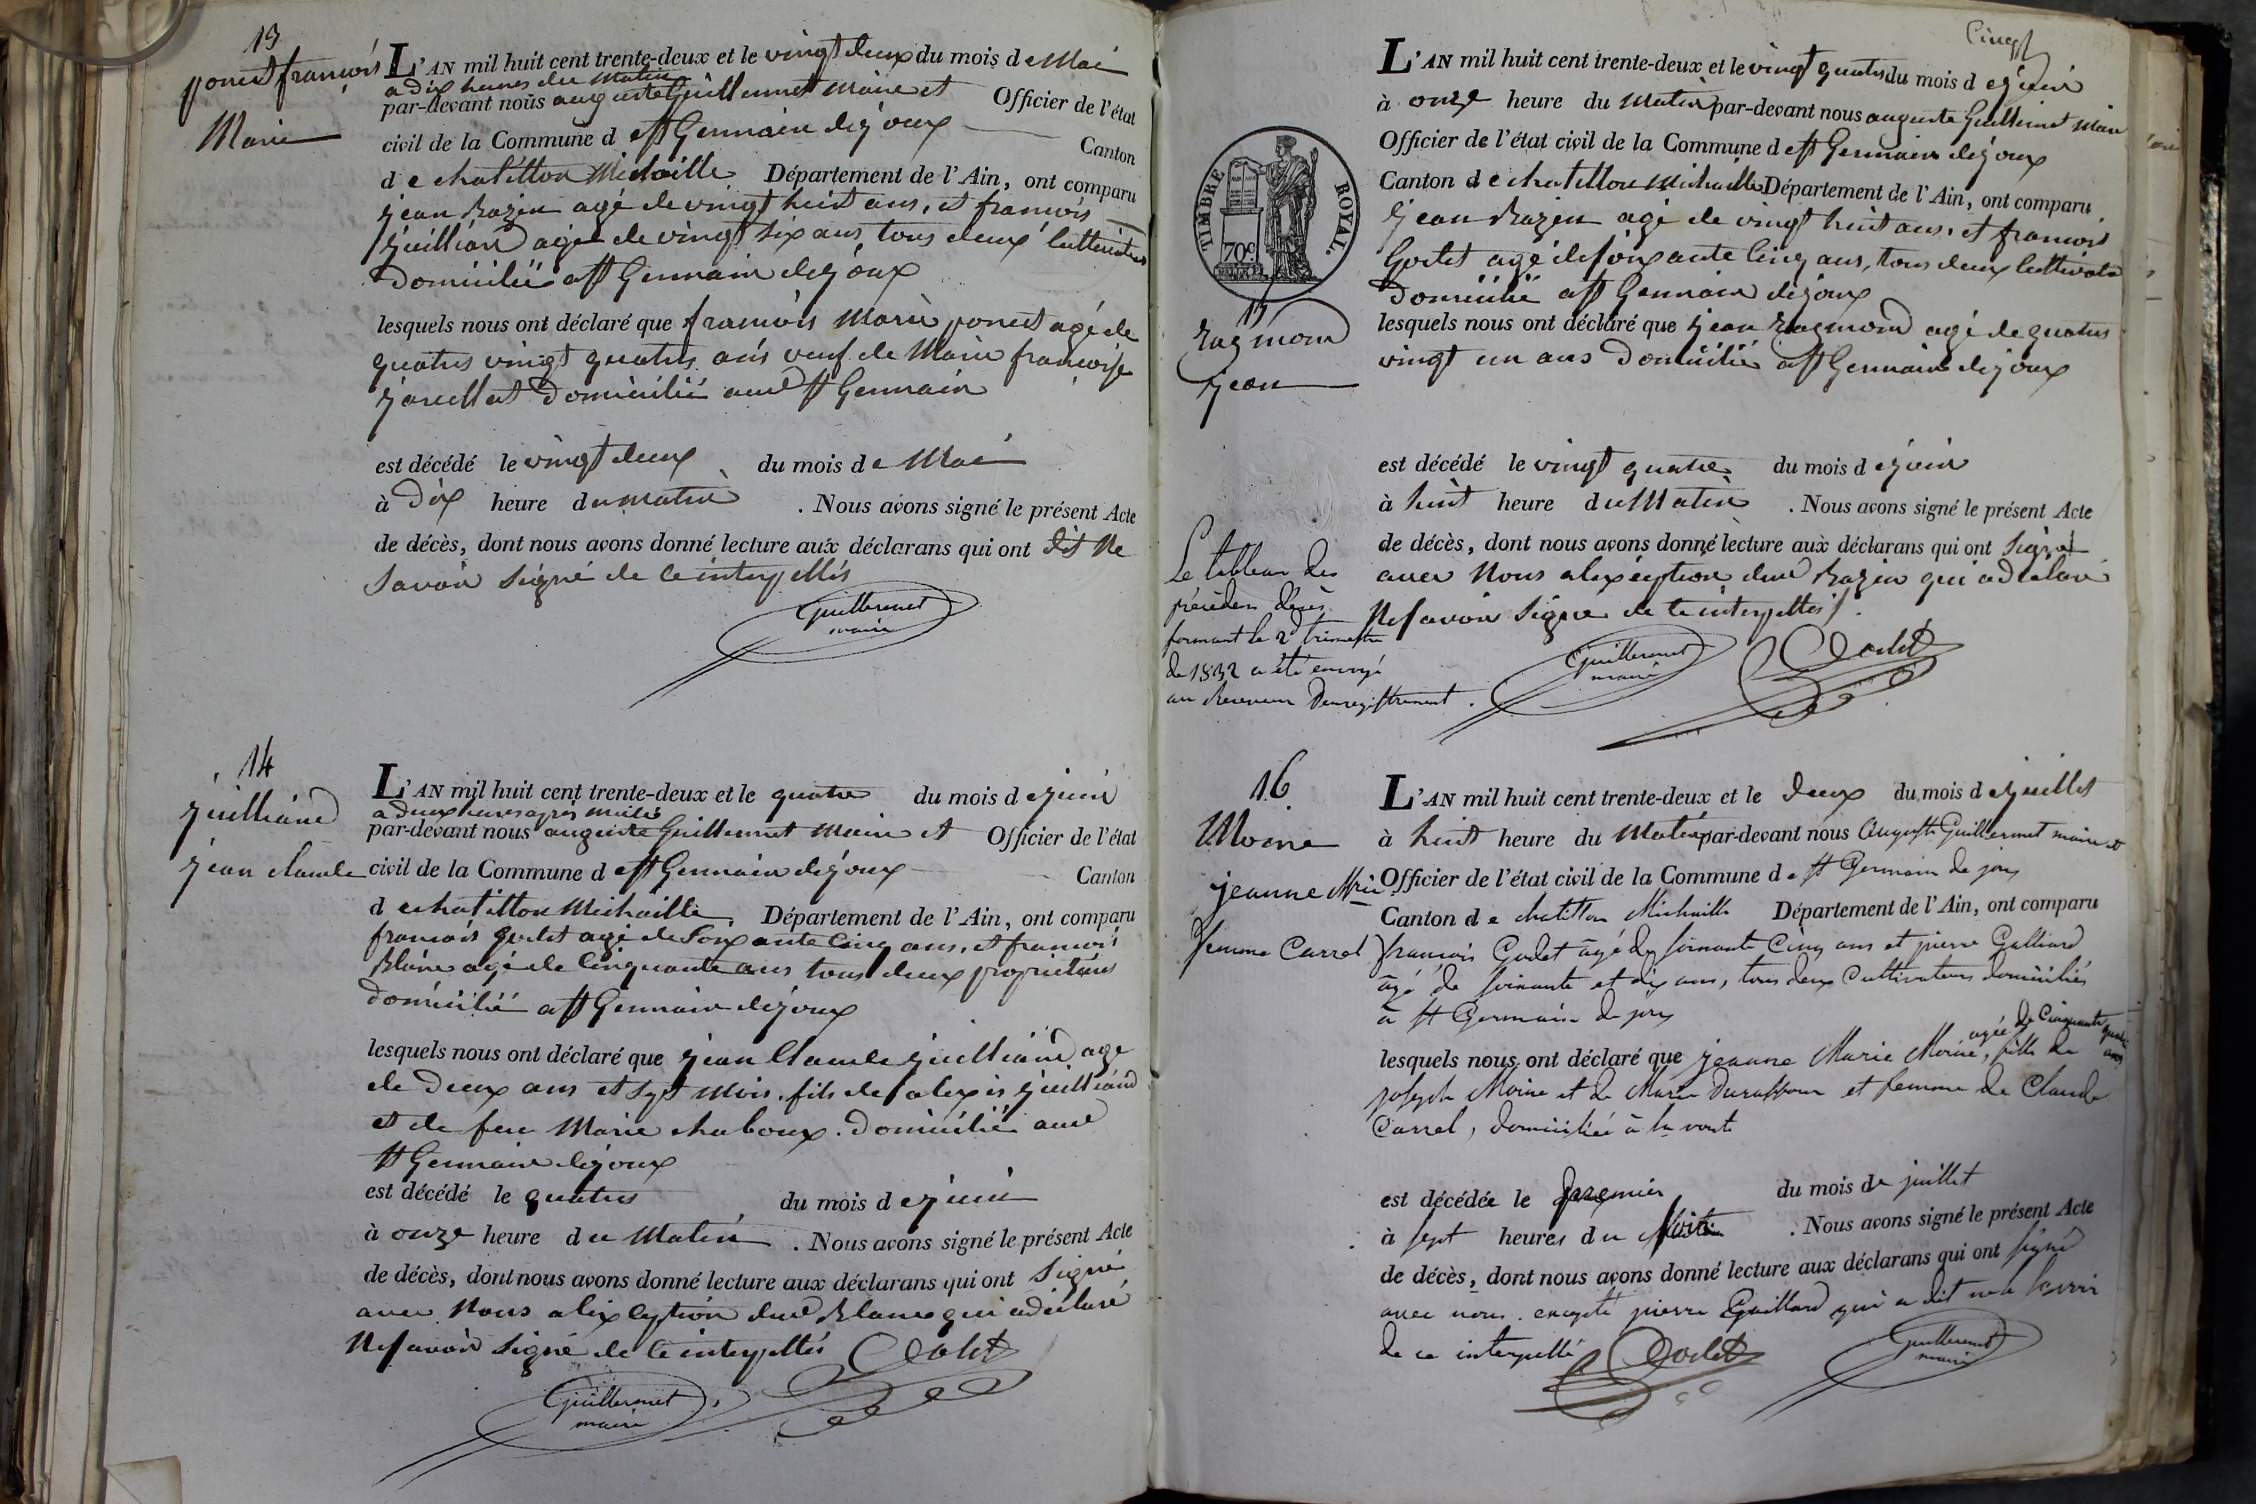 13
ponest françois
Marie
L'AN mil huit cent trente-deux et le vingt deux du mois de Mai
a dix heures du matin
par-devant nous auguste Guillermet Maire et Officier de l'état
civil de la Commune d e St Germain dejoux Canton
de chatillon Michaille Département de l'Ain, ont comparu
jean Razin agé de vingt huit ans, et françois
juilliard agé de vingt six ans tous deux cultivateurs
domicilié a St Germain dejoux
lesquels nous ont déclaré que françois Marie ponest agé de
quatre vingt quatre ans veuf de Marie françoise
domicilié aud St Germain
est décédé le vingt deux du mois de Mai
à dix heure du matin . Nous avons signé le présent Acte
de décès, dont nous avons donné lecture aux déclarans qui ont dit Ne
savoir signé de ce interpellés
Guillermet
maire
14
juilliard
jean claude
L'AN mil huit cent trente-deux et le quatre du mois de juin
a deux heures après midi
par-devant nous auguste Guillermet Maire et Officier de l'état
civil de la Commune d e St Germain dejoux Canton
de chatillon Michaille Département de l'Ain, ont comparu
françois Godet agé de soixante cinq ans, et françois
Blanc agé de cinquante ans tous deux proprietaires
domicilié a St Germain dejoux
lesquels nous ont déclaré que jean Claude juilliard age
de deux ans et sept mois fils de alexis juilliard
et de feu Marie chaboux domicilié aud
St Germain dejoux
est décédé le quatre du mois de juin
à onze heure du Matin . Nous avons signé le présent Acte
de décès, dont nous avons donné lecture aux déclarans qui ont Signé
avec Nous a lexception dud Blanc qui a déclaré
Ne savoir signé de ce interpellés Godet
Guillermet
maire
Cinq
L'AN mil huit cent trente-deux et le vingt quatre du mois de juin
à onze heure du Matin par-devant nous auguste Guillermet Maire
Officier de l'état civil de la Commune d e St Germain dejoux
Canton de chatillon Michaille Département de l'Ain, ont comparu
jean Razin agé de vingt huit ans, et françois
Godet agé de soixante cinq ans, tous deux cultivateurs
domicilié a St Germain dejoux
TIMBRE ROYAL.
70c
15
Raymond
jean
lesquels nous ont déclaré que jean Raymond agé de quatre
vingt un ans domicilié a St Germain dejoux
est décédé le vingt quatre du mois de juin
à huit heure du Matin . Nous avons signé le présent Acte
de décès, dont nous avons donné lecture aux déclarans qui ont signé
avec Nous a lexception dud Razin qui a déclaré
Ne savoir signer de ce interpellés
Guillermet
maire
Godet
Le tableau des
précédens décès
formant le 2d trimestre
de 1832 a été envoyé
au Receveur Denregistrement.
16
Moine
jeanne Mrie
femme Carrel
L'AN mil huit cent trente-deux et le deux du mois de juillet
à huit heure du Matin par-devant nous Auguste Guillermet maire et
Officier de l'état civil de la Commune de St Germain de joux
Canton de chatillon Michaille Département de l'Ain, ont comparu
françois Godet âgé de soixante Cinq ans et pierre Galliard
âgé de soixante et dix ans, tous deux Cultivateurs domiciliés
à St Germain de joux
agée de Cinquante quatre ans
lesquels nous ont déclaré que jeanne Marie Moine, fille de
joseph Moine et de Marie Duraffour et femme de Claude
Carrel, domiciliée à la voute
est décédée le premier du mois de juillet
à sept heures du Soir . Nous avons signé le présent Acte
de décès, dont nous avons donné lecture aux déclarans qui ont signé
avec nous excepté pierre Gaillard qui a dit ne le savoir
de ce interpellé
Godet
Guillermet
maire